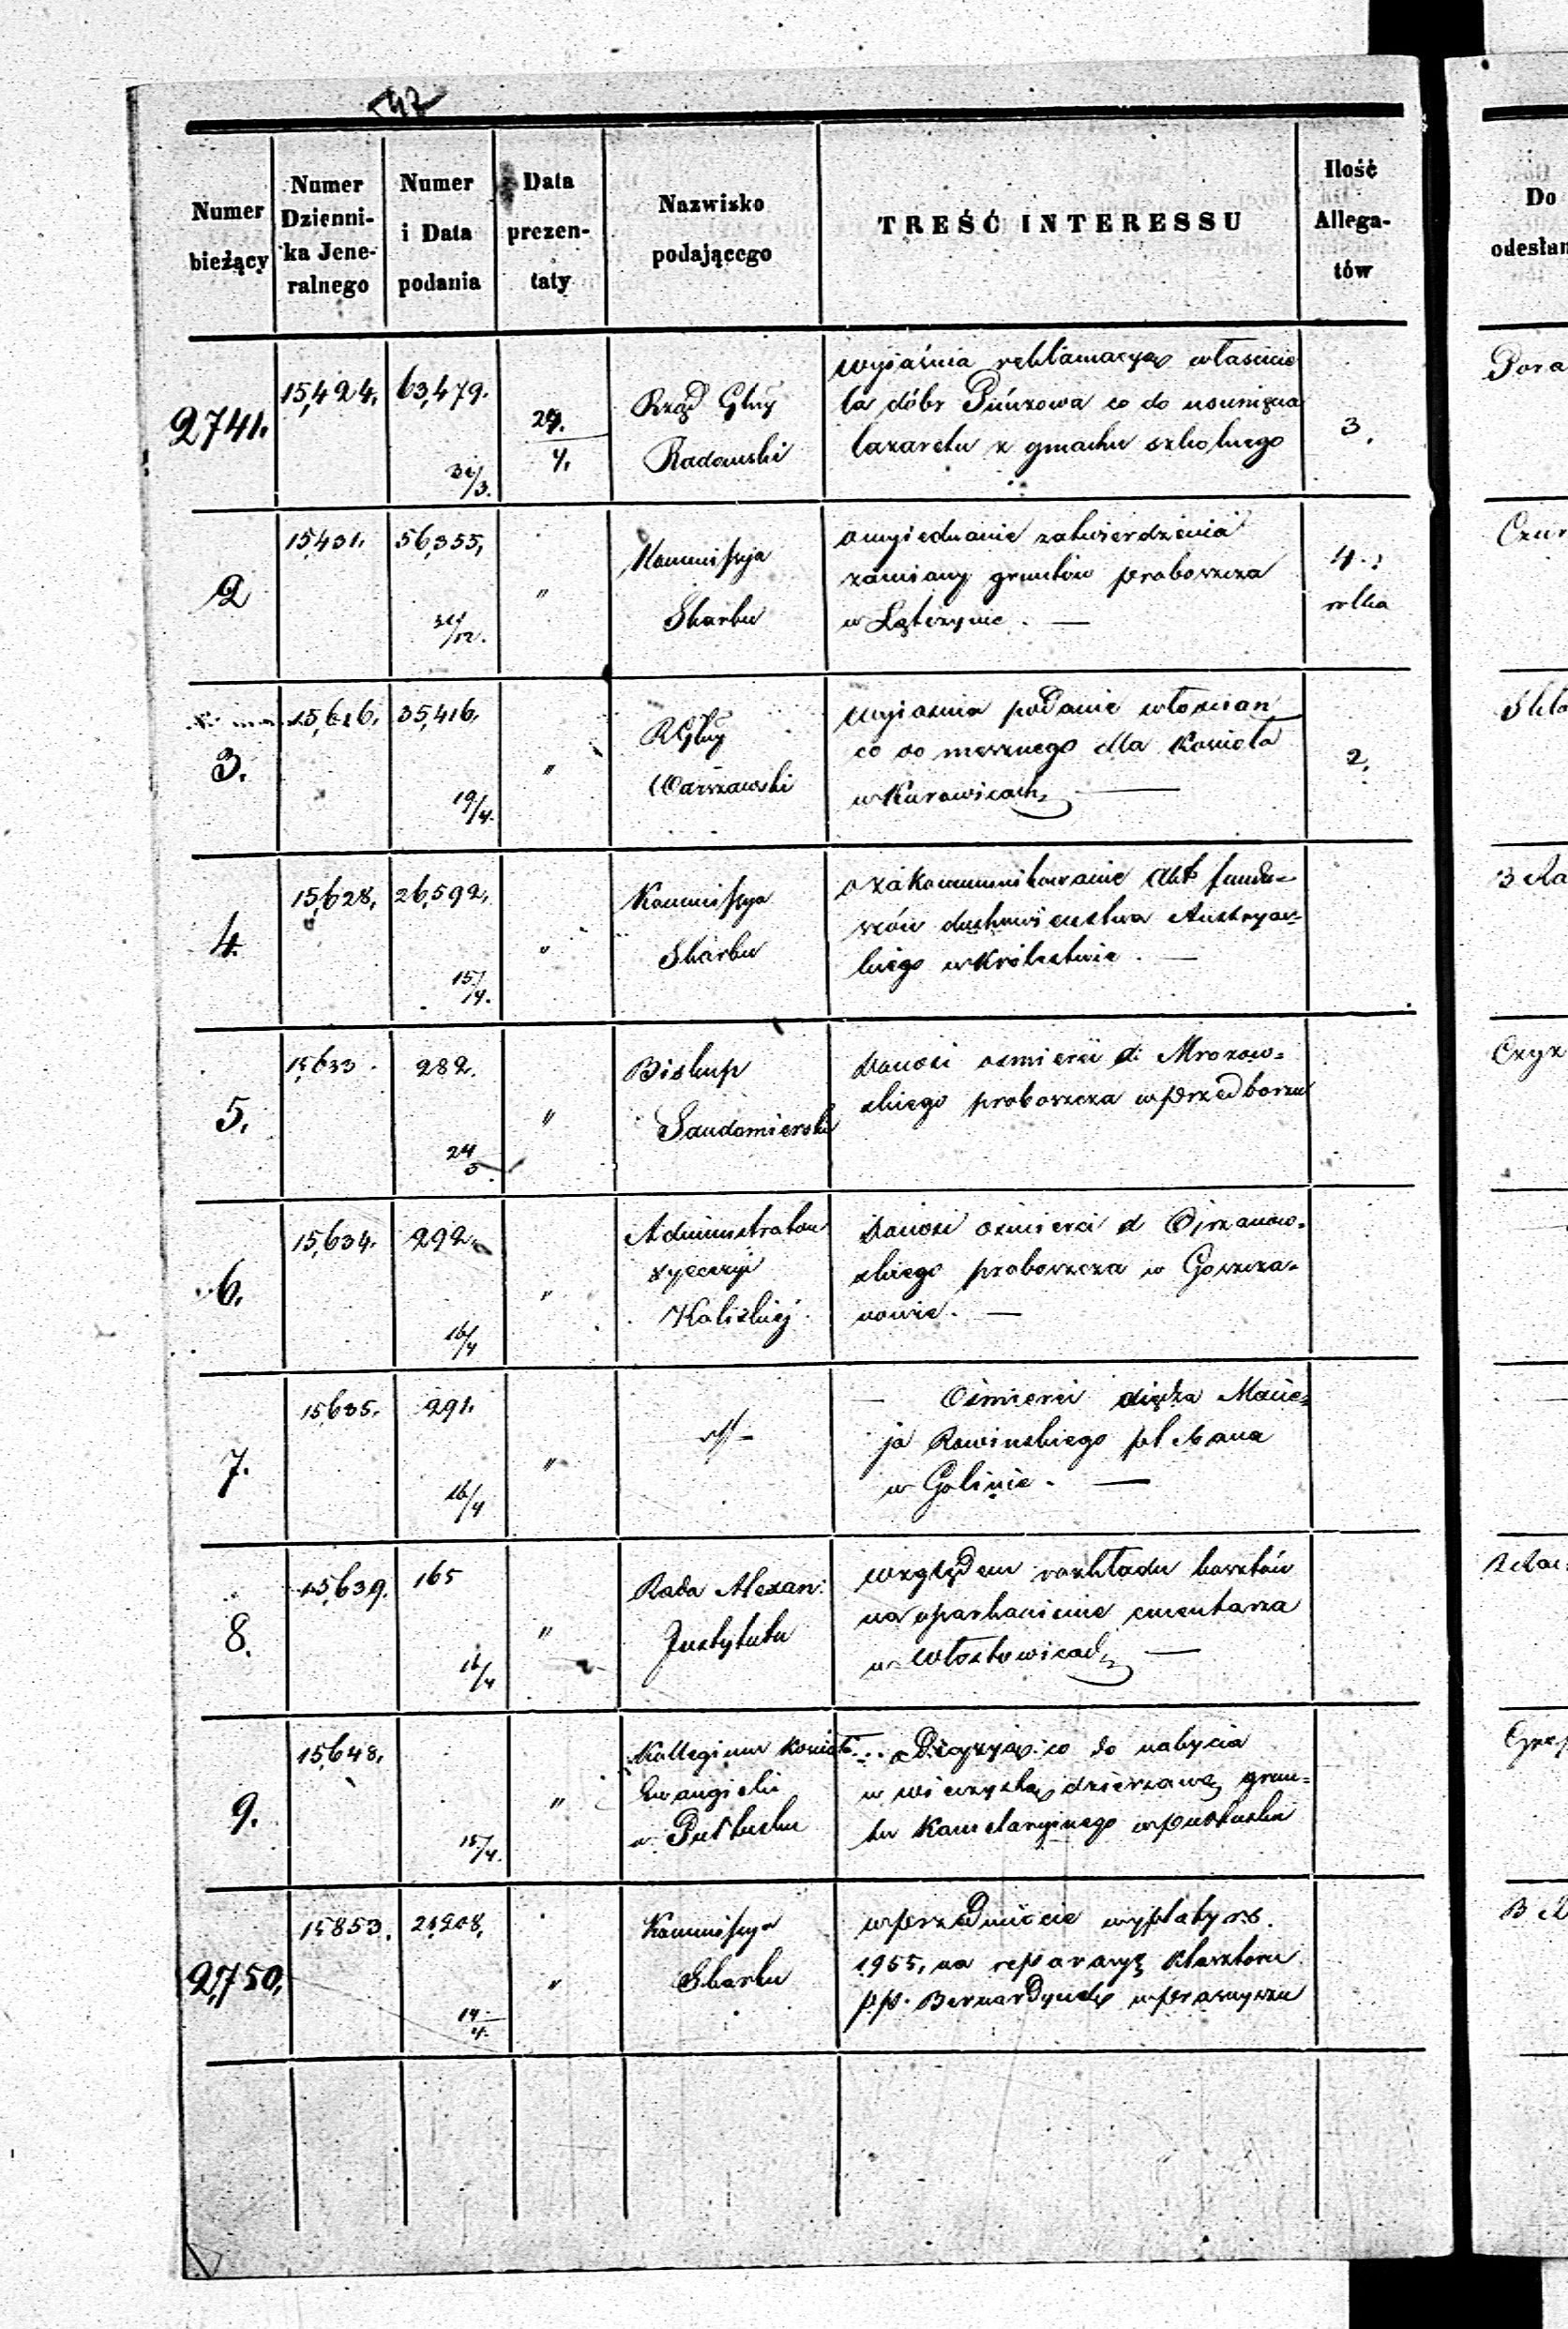 Numer bieżący
Numer Dzienni-ka Jene-ralnego
Numer i Data podania
Data prezen-taty
Nazwisko podającego
TREŚĆ INTERESSU
Ilość Allega-tów
Do
odesłan
2741.
15,424.
63,479.
31/3.
29.
4.
Rząd Gbny
Radomski
wyjaśnia reklamacyą właścicie
la dóbr Pińczowa co do usunięcia
lazaretu z gmachu szkolnego
3.
2
15,431.
56,355,
31/12.
"
Kommissya
Skarbu
o wyjednanie zatwierdzenia
zamiany gruntów proboszcza
w
4.
3.
15,616.
35,416.
19/4.
"
RGbny
Warszawski
wyjaśnia podanie włościan
co do mesznego dla Kościoła
w Kurowicach
2.
4.
15,628,
26,592,
15/4.
"
Kommissya
Skarbu
o zakommunikowanie Akt fundu-
szów duchowieństwa Austryac-
kiego w Królestwie.
5.
15,633.
282.
24
"
Biskup
Sandomierski
donosi o śmierci X. Mrozow-
skiego proboszcza w Przedborzu
6.
15,634.
292.
16/4
"
Administrator
dyecezyi
Kaliskiej
donosi o śmierci X
skiego proboszcza w Goszcza-
nowie.
7.
15,635.
291.
16/4
"
O śmierci księdza Macie-
ja Rowińskiego plebana
w Golinie.
8.
15,639.
165
16/4
"
Rada Alexan:
Instytutu
względem rozkładu kosztów
na oparkanienie cmentarza
w Włostowicach
9.
15,648,
15/4.
"
Kollegium Kościoła
Ewangielic
w Pułtusku
o Decyzyą co do nabycia
w wieczystą dzierżawę grun-
tu Kameralnego w Pułtusku
2,750,
15853.
21208,
14
4.
"
Kommissya
Skarbu
w przedmiocie wypłaty rs.
1955, na reparacyę klasztoru
p.p. Bernardynek w Przasnyszu